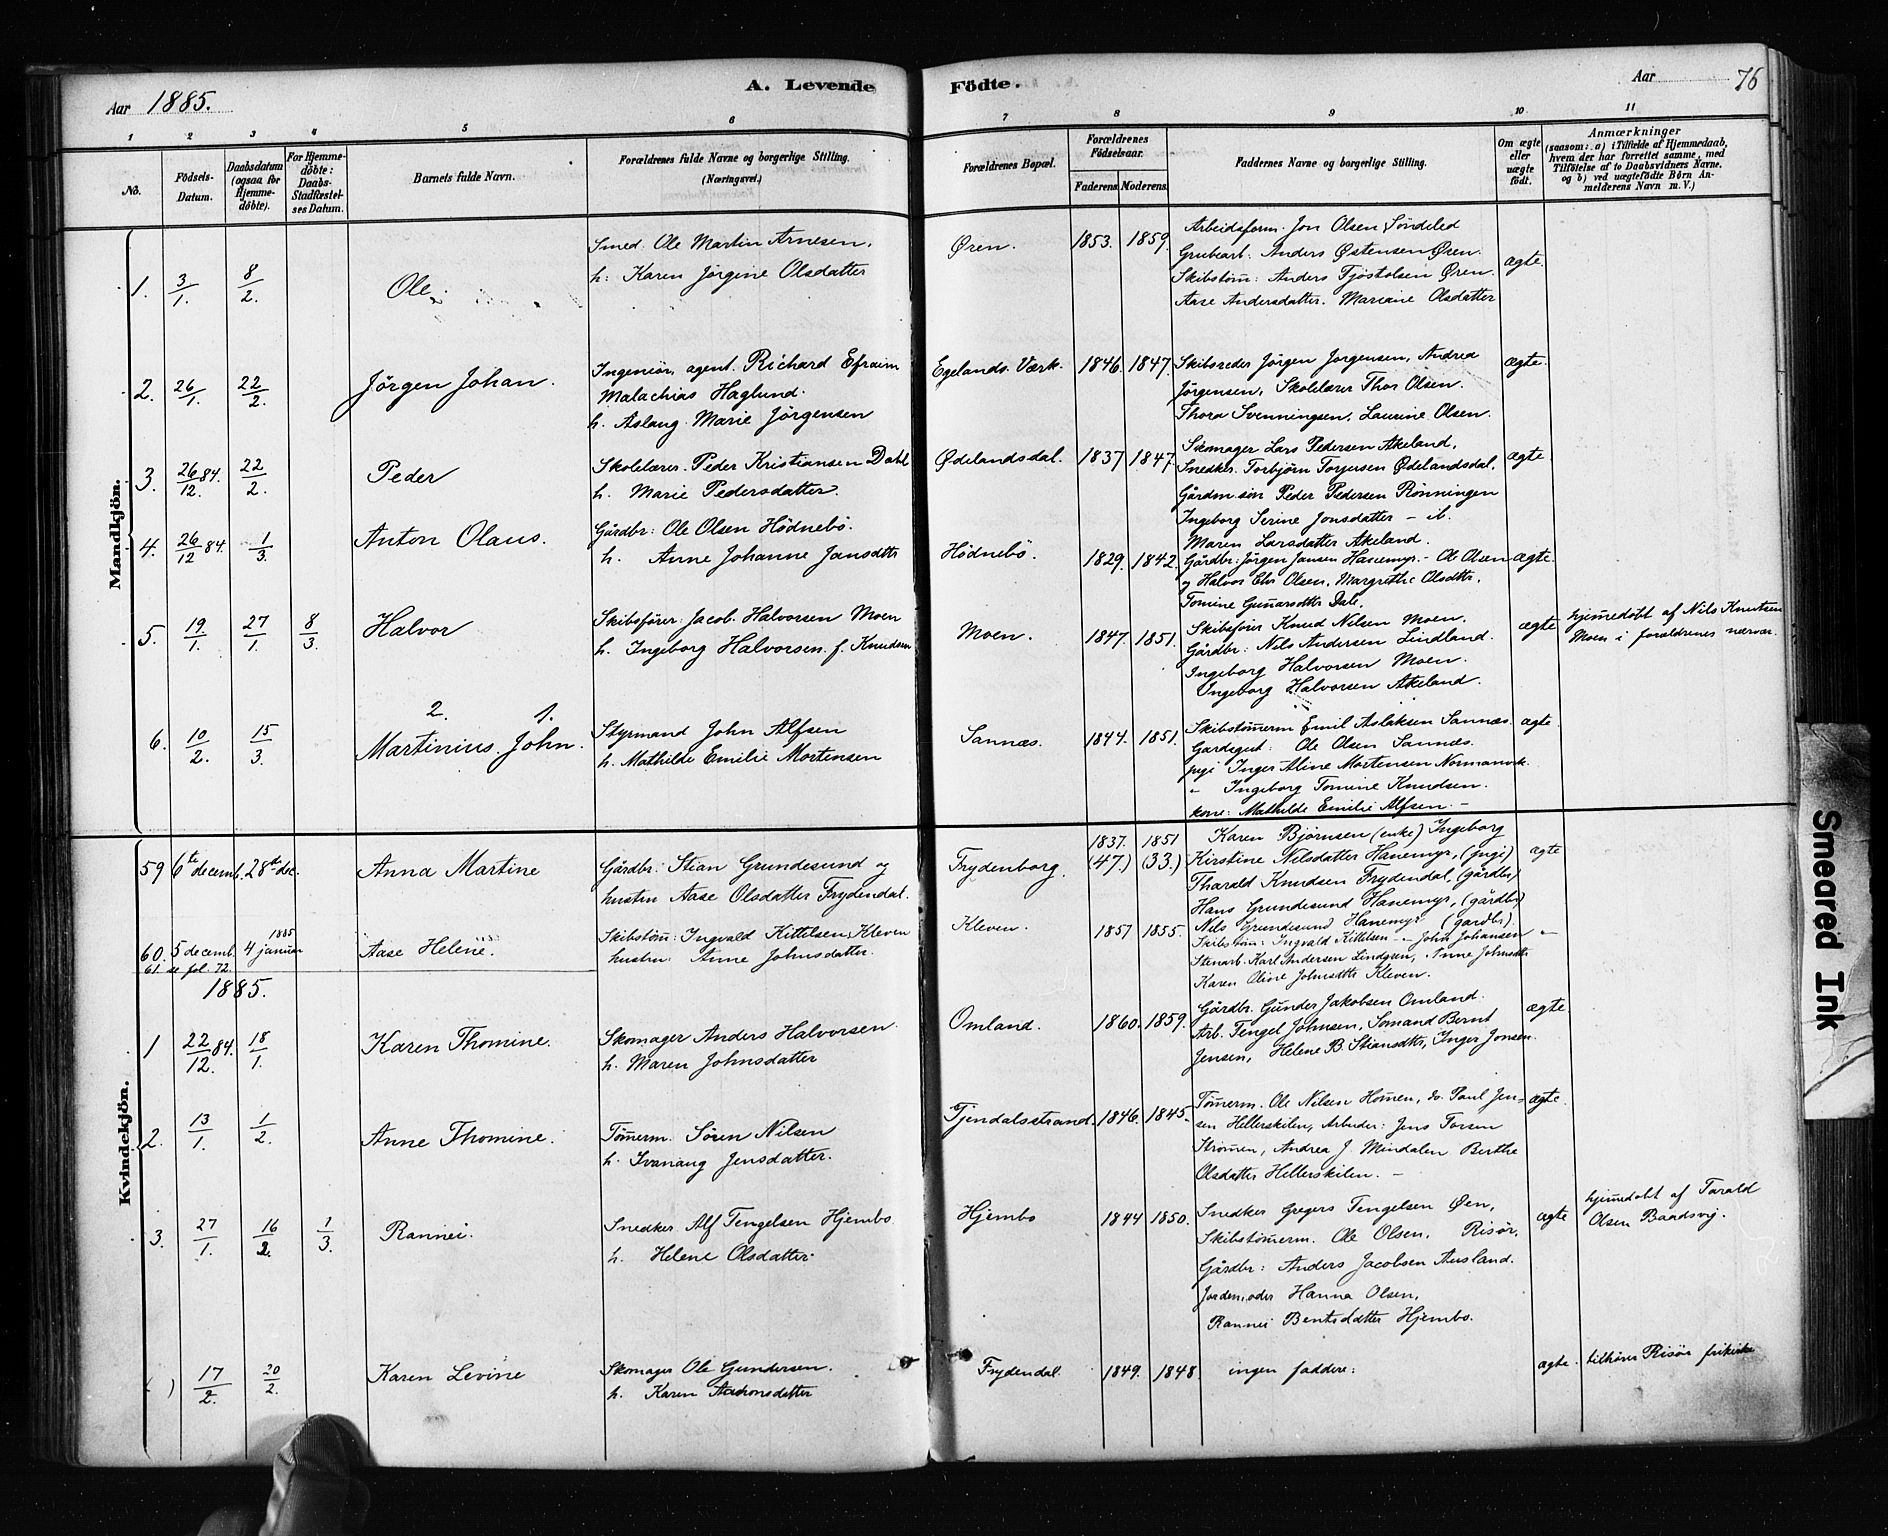 Aar 1885. A. Levende Födte. Aar 76
1 2 3 4 5 6 7 8 9 10 11
No. Födsels-Datum. Daabsdatum (ogsaa for Hjemmedöbte). For Hjemmedöbte: Daabs-Stadfæstelses Datum. Barnets fulde Navn. Forældrenes fulde Navne og borgerlige Stilling. (Næringsvei.) Forældrenes Bopæl. Forældrenes Födselsaar. Faderens. Moderens. Faddernes Navne og borgerlige Stilling. Om ægte eller uægte födt. Anmærkninger (saasom: a) i Tilfælde af Hjemmedaab, hvem der har forrettet samme, med Tilföielse af to Daabsvidners Navne. og b) ved uægtefödte Börn Anmelderens Navn m. V.)
Mandkjön.
1. 3/1. 8/2. Ole. Smed. Ole Martin Arnesen,
h: Karen Jörgine Olsdatter
Øren. 1853. 1859. Arbeidsform. Jon Olsen Söndeled
Grubearb: Anders Østensen Øren.
Skibstöm: Anders Tjöstolsen Øren.
Aase Andersdatter. Mariane Olsdatter
ægte.
2. 26/1. 22/2. Jörgen Johan. Ingeniör, agent. Richard Efraim
Malachias Haglund.
h. Aslaug Marie Jörgensen
Egelands Værk. 1846. 1847. Skibsreder Jörgen Jorgensen, Andrea
Jörgensen, Skolelærer Thor Olsen.
Thora Svenningsen, Laurine Olsen.
ægte.
3. 26/12. 84. 22/2. Peder Skolelærer. Peder Kristiansen Dahl
h. Marie Pedersdatter.
Ødelandsdal. 1837 1847. Skomager Lars Pedersen Akeland,
Snedker. Torbjörn Torjusen Ødelandsdal,
Gårdm. sön Peder Pedersen Rönningen
Ingeborg Serine Jonsdatter - ib.
Maren Larsdatter Akeland.
ægte.
4. 26/12 84. 1/3. Anton Olaus. Gårdbr: Ole Olsen Hödnebö.
h. Anne Johanne Jansdttr
Hödnebö. 1829. 1842. Gårdbr: Jörgen Jansen Hanemyr. - Ole Olsen
og Halvor Olsen, Margrethe Olsdttr,
Tomine Gunarsdttr Dale.
ægte.
5. 19/1. 27/1. 8/3. Halvor Skibsförer Jacob Halvorsen Moen
h. Ingeborg Halvorsen f. Knudsen
Moen. 1847. 1851. Skibsförer Knud Nilsen Moen.
Gårdbr: Nils Andersen Lindland.
Ingeborg Halvorsen Moen.
Ingeborg Halvorsen Akeland.
ægte hjemedöbt af Nils Knutsen
Moen i foraldrenes nærvær.
6. 10/2. 15/3. 2. 1.
Martinius. John. Styrmand John Alfsen
h. Mathilde Emilie Mortensen
Sannæs. 1844. 1851. Skibstömerm Emil Aslaksen Sannæs.
Gardegut: Ole Olsen Sannæs.
pige Inger Aline Mortensen Normansvk.
" Ingeborg Tomine Knudsen.
kone: Mathilde Emilie Alfsen. -
ægte.
Kvindekjön.
59 6te decemb. 28de dec. Anna Martine Gårdbr: Stian Grundesund og
hustru Aase Olsdatter Frydendal.
Frydenborg. 1837. (47.) 1851 (33.) Karen Björnsen (enke) Ingeborg
Kirstine Nilsdatter Hanemyr, (pige)
Tharald Knudsen Frydendal, (gårdbr)
Hans Grundesund Hanemyr, (gårdbr)
Nils Grundesund Hanemyr (gårdbr).
ægte
60. 5 decemb. 1885 4 januar Aase Helene. Skibstöm: Ingvald Kittelsen Kleven
hustru: Anne Johnsdatter.
Kleven. 1857 1855. Skibstöm: Ingvald Kittelsen - John Johansen
Stenarb. Karl Andersen Lindgren, Anne Johnsdttr
Karen Oline Johnsdttr Kleven.
"
61 se fol. 72.
1885.
1 22/12. 84. 18/1. Karen Thomine. Skomager Anders Halvorsen.
h. Maren Johnsdatter
Omland. 1860. 1859. Gårdbr. Gunder Jakobsen Omland.
Arb. Tengel Johnsen, Sömand Bernt
Jensen, Helene B. Stiansdttr, Inger Jonsen.
ægte
2. 13/1. 1/2. Anne Thomine. Tömerm. Sören Nilsen
h. Ivanaug Jensdatter.
Tjendalsstrand. 1846. 1845. Tömerm. Ole Nilsen Homen, do. Paul Jen-
sen Hellerskilen, Arbeider: Jens Torsen
Strömen, Andrea J Mindalen Berthe
Olsdatter Hellerskilen. -
ægte.
3. 27/1. 16/2. 1/3. Rannei. Snedker Alf Tengelsen Hjembo
h. Helene Olsdatter.
Hjembo 1844 1850. Snedker Gregers Tengelsen Øen,
Skibstömerm. Ole Olsen, Risör,
Gårdbr: Anders Jacobsen Ausland.
Jordemoder Hanna Olsen,
Rannei Bentsdatter Hjembo.
ægte hjemedöbt af Tarald
Olsen Baadsvig.
( ) 17/2. 20/2. Karen Levine Skomager Ole Gundersen.
h. Karen Aachonsdatter
Frydendal. 1849. 1848. ingen faddere: ægte. tilhörer Risör frikirke
Smeared Ink